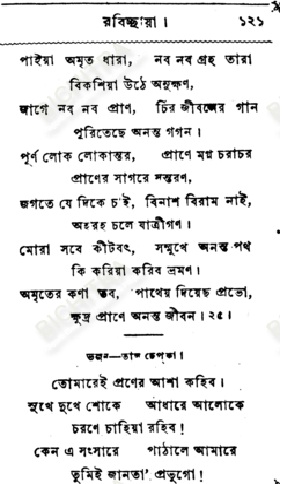 রবিচ্ছায়া। ১২১
পাইয়া অমৃত ধারা, নব নব গ্রহ তারা
বিকশিয়া উঠে অনুক্ষণ,
জাগে নব নব প্রাণ, চির জীবনের গান
পূরিতেছে অনন্ত গগন।
পূর্ণ লোক লোকান্তর, প্রাণে মগ্ন চরাচর
প্রাণের সাগরে সন্তরণ,
জগতে যে দিকে চাই, বিনাশ বিরাম নাই,
অহরহ চলে যাত্রীগণ।
মোরা সবে কীটবৎ, সম্মুখে অনন্ত পথ
কি করিয়া করিব ভ্রমণ।
অমৃতের কণা তব, পাথেয় দিয়েছ প্রভো,
ক্ষুদ্র প্রাণে অনন্ত জীবন। ২৫।
ভজন—তাল
তোমারেই প্রাণের আশা কহিব।
সুখে দুখে শোকে আঁধারে আলোকে
চরণে চাহিয়া রহিব!
কেন এ সংসারে পাঠালে আমারে
তুমিই জানতা' প্রভুগো!